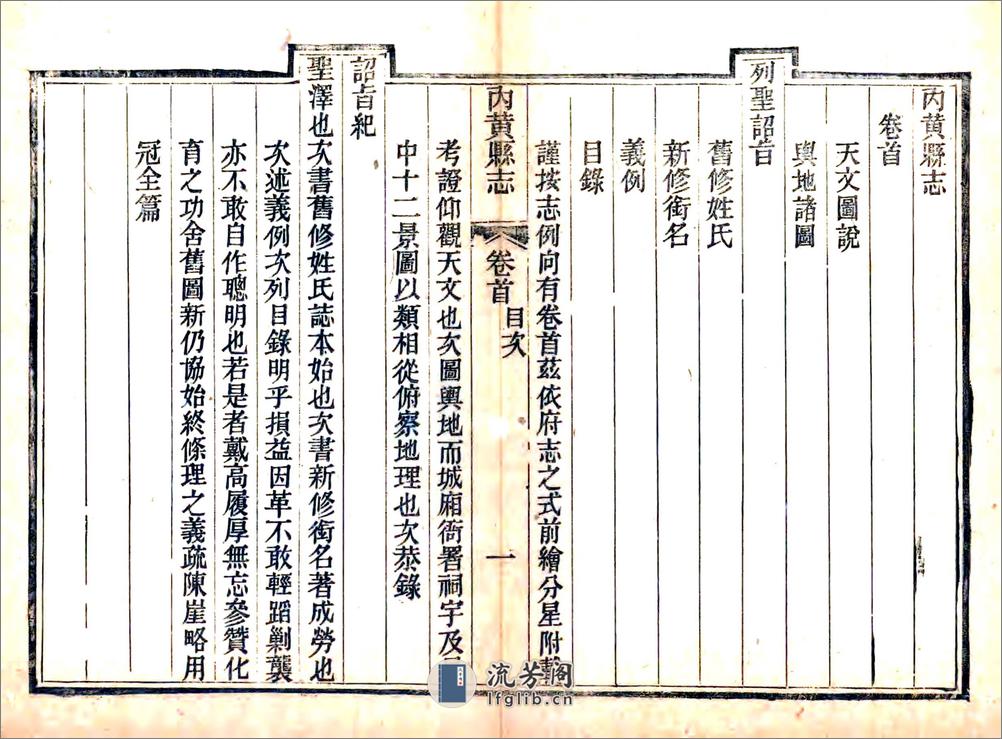 內黃縣志
卷首
天文圖說
輿地諸圖
列聖詔旨
舊修姓氏
新修銜名
義例
目錄
謹按志例向有卷首茲依府志之式前繪分星附載
內黃縣志 卷首 目次 一
考證仰觀天文也次圖輿地而城廂衙署祠宇及
中十二景圖以類相從俯察地理也次恭錄
詔旨紀
聖澤也次書舊修姓氏誌本始也次書新修銜名著成勞也
次述義例次列目錄明乎損益因革不敢輕蹈剿襲
亦不敢自作聰明也若是者戴高履厚無忘參贊化
育之功舍舊圖新仍協始終條理之義疏陳崖略用
冠全篇
流芳閣
lfglib.cn